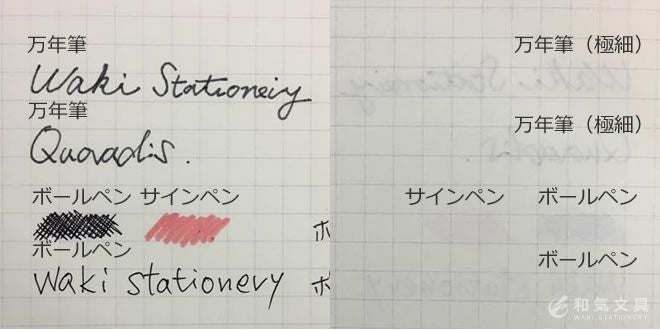 万年筆
Waki Stationery
万年筆
Quovadis.
ボールペン サインペン
ボールペン
Waki stationery
万年筆（極細）
万年筆（極細）
サインペン ボールペン
ボールペン
和気文具
WAKI STATIONERY